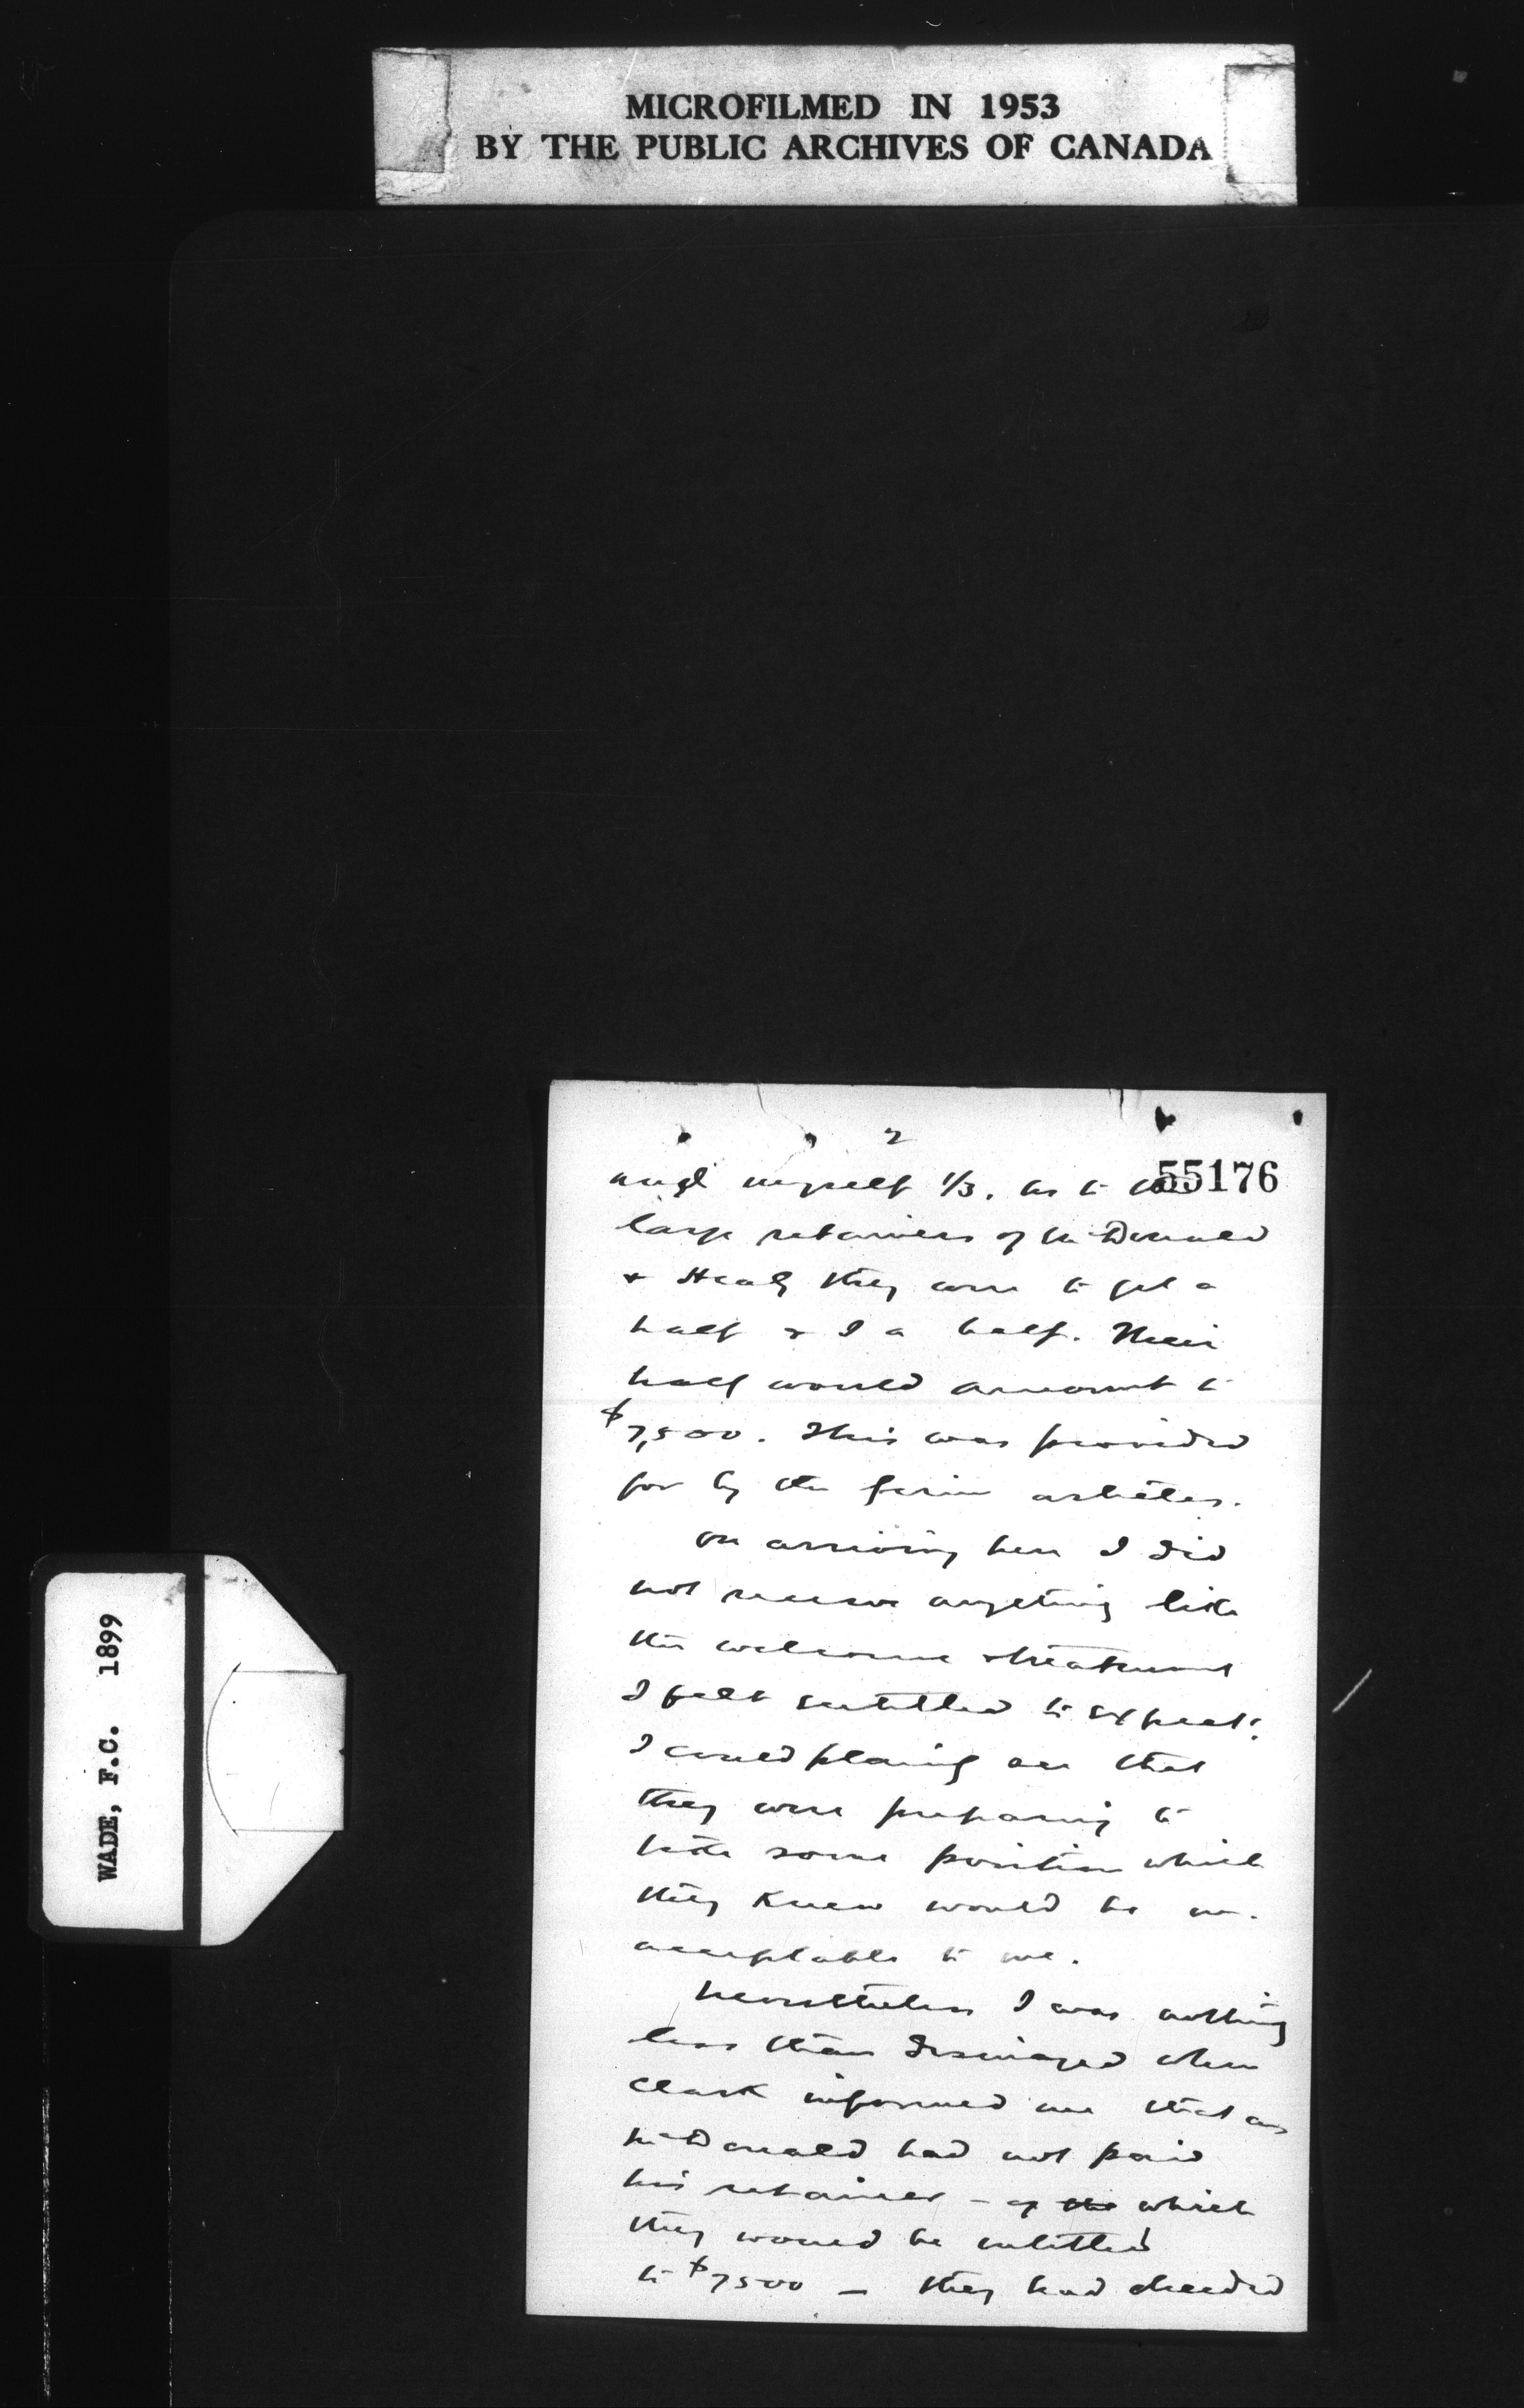 MICROFILMED IN 1953
BY THE PUBLIC ARCHIVES OF CANADA
2
55176
and myself 1/3. As to the
large retainers of McDonald
& Healy they were to get a
half & I a half. Their
half would amount to
$7,500. This was provided
for by the firm articles.
On arriving here I did
not receive anything like
the welcome & treatment
I felt entitled to expect.
I could plainly see that
they were preparing to
take some position which
they knew would be un-
acceptable to me.
Nevertheless I was nothing
less than dismayed when
Clark informed me that as
McDonald had not paid
his retainer - of the which
they would be entitled
to $7500 — they had decided
WADE, F.C. 1899